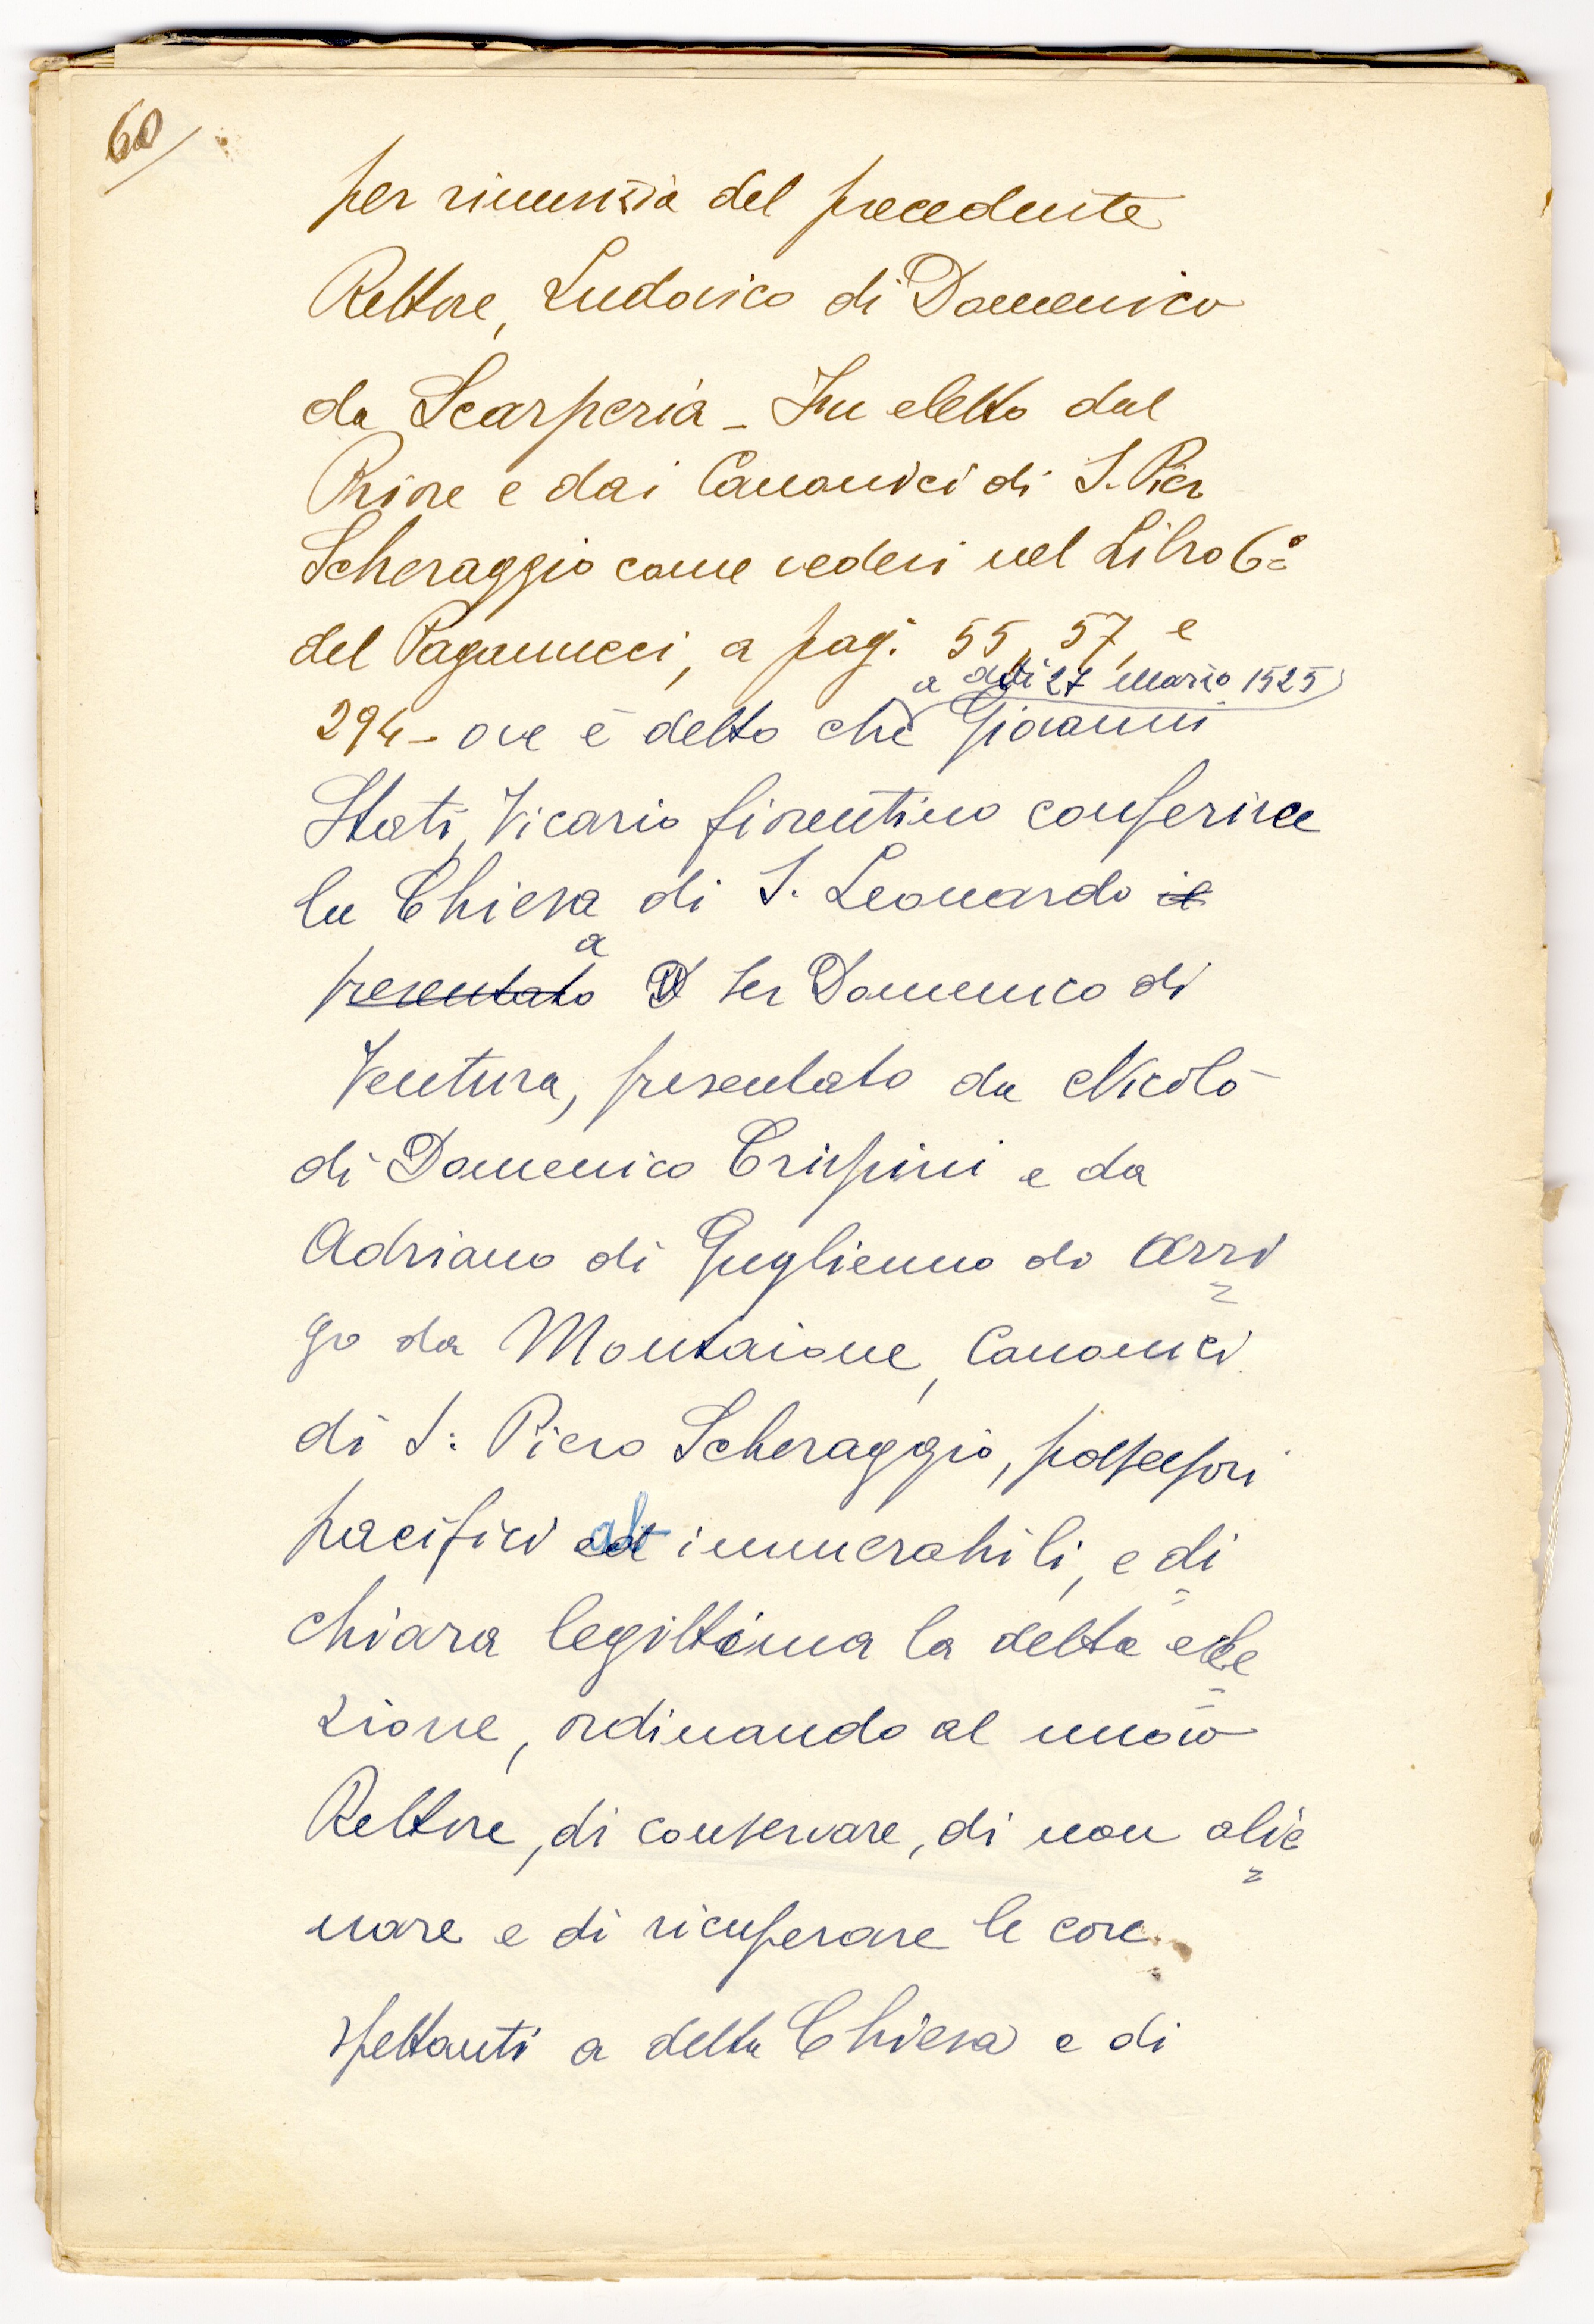 60
per rinunzia del precedente
Rettore, Ludovico di Domenico
da Scarperia - Fu eletto dal
Priore e dai Canonici di S. Pier
Scheraggio come vedesi nel Libro 6º
del Pagannucci, a pag. 55, 57, e
a dì 27 Marzo 1525
294 - ove è detto che Giovanni
Stati, Vicario fiorentino conferisce
la Chiesa di S. Leonardo il
presentato a Ser Domenico di
Ventura, presentato da Nicolò
di Domenico Crispini e da
Adriano di Guglielmo di Arri
go da Montaione, Canonici
di S: Piero Scheraggio, possessori
pacifici ab immerabili, e di
chiara legittima la detta ele
zione, ordinando al nuovo
Rettore, di conservare, di non alie
nare e di ricuperare le cose
spettanti a detta Chiesa e di